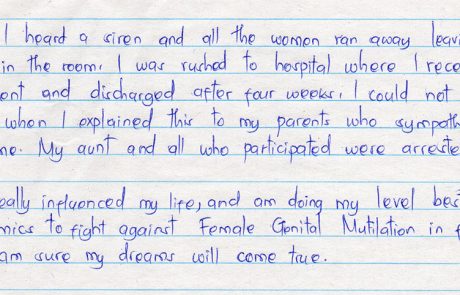 I heard a siren and all the women ran away leavi
in the room. I was rushed to hospital where I rece
ent and discharged after four weeks. I could not
when I explained this to my parents who sympath
ne. My aunt and all who participated were arreste
eally influenced my life, and am doing my level bes
mics to fight against Female Genital Mutilation in f
am sure my dreams will come true.